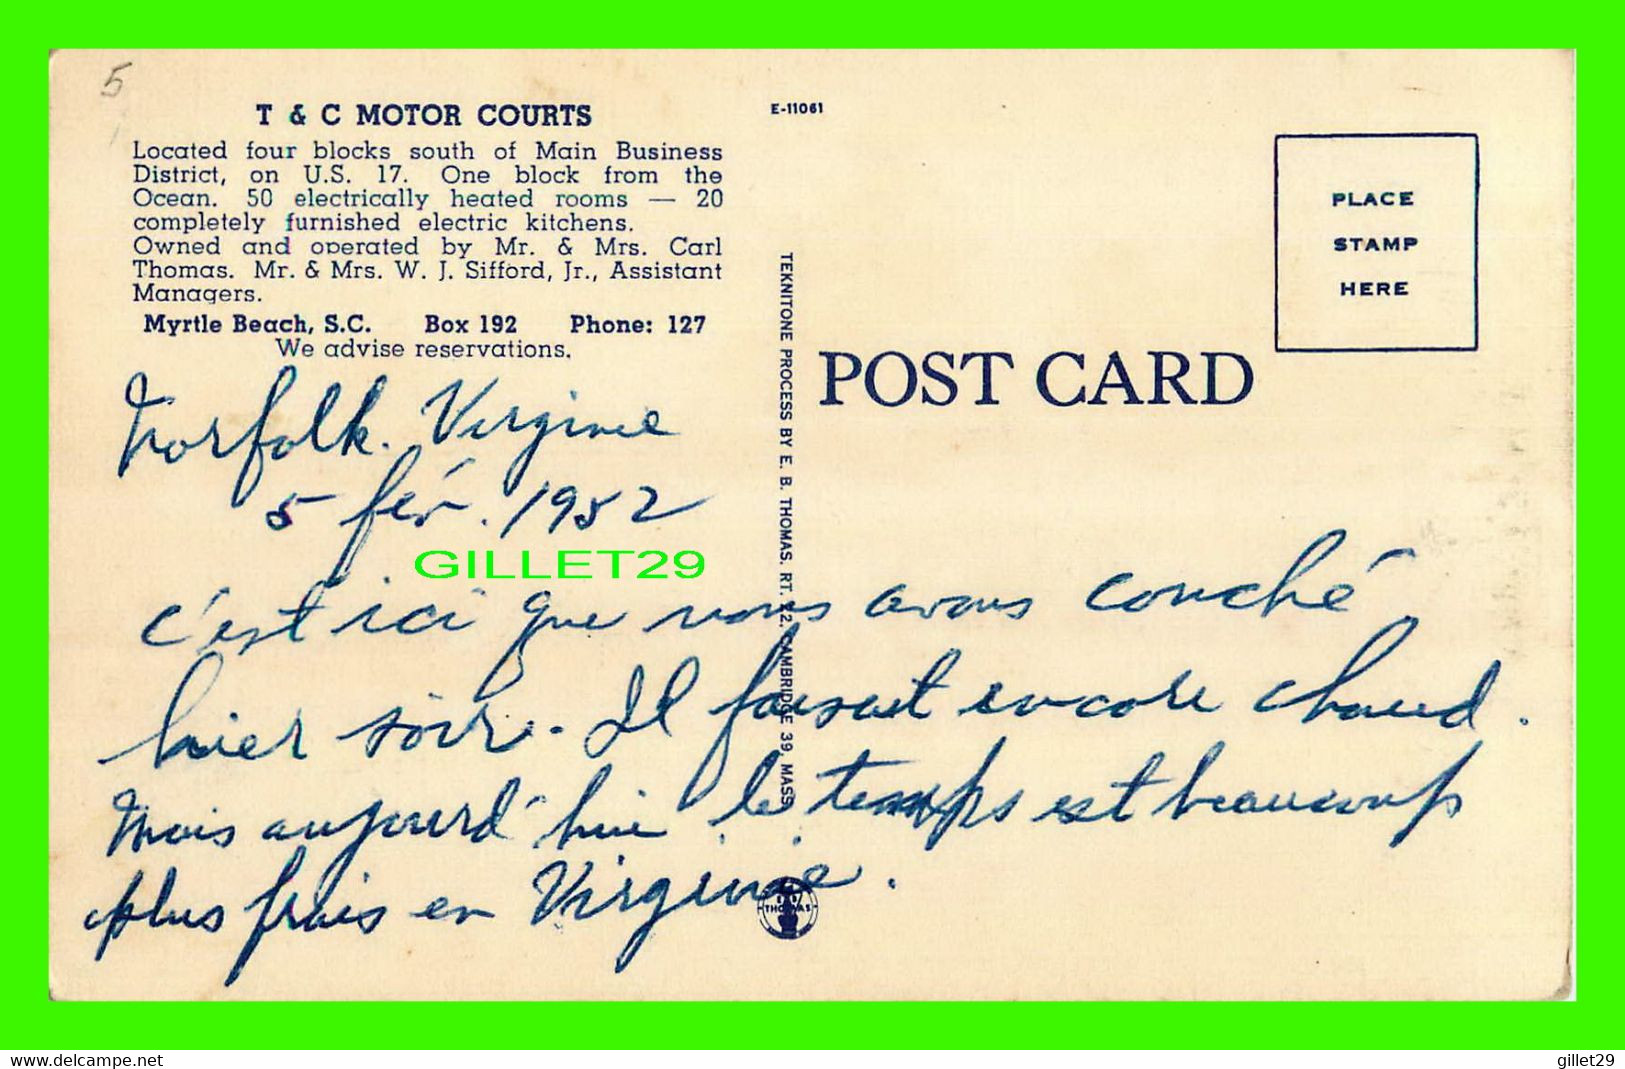 5
T & C MOTOR COURTS
Located four blocks south of Main Business
District, on U.S. 17. One block from the
Ocean. 50 electrically heated rooms — 20
completely furnished electric kitchens.
Owned and operated by Mr. & Mrs. Carl
Thomas. Mr. & Mrs. W. J. Sifford, Jr., Assistant
Managers.
Myrtle Beach, S.C. Box 192 Phone: 127
We advise reservations.
E-11061
PLACE
STAMP
HERE
POST CARD
TEKNITONE PROCESS BY E. B. THOMAS, RT. 2, CAMBRIDGE 39, MASS.
Norfolk. Virginie
5 fév. 1952
GILLET29
c'est ici que nous avons couché
hier soir. Il faisait encore chaud.
Mais aujourd'hui le temps est beaucoup
plus frais en Virginie.
THOMAS
www.delcampe.net
gillet29